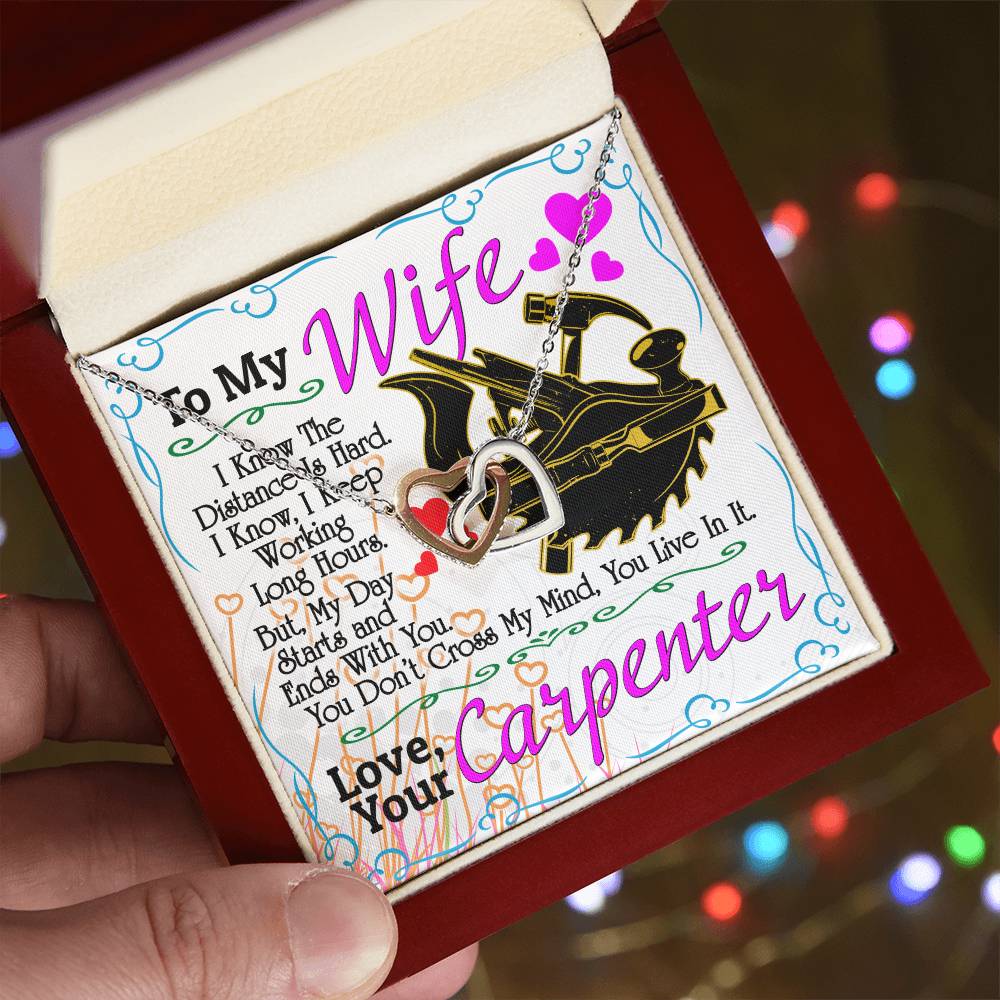 To My Wife
I Know The
Distance Is Hard.
I Know, I Keep
Working
Long Hours.
But, My Day
Starts and
Ends With You.
You Don't Cross My Mind, You Live In It.
Love,
Your Carpenter